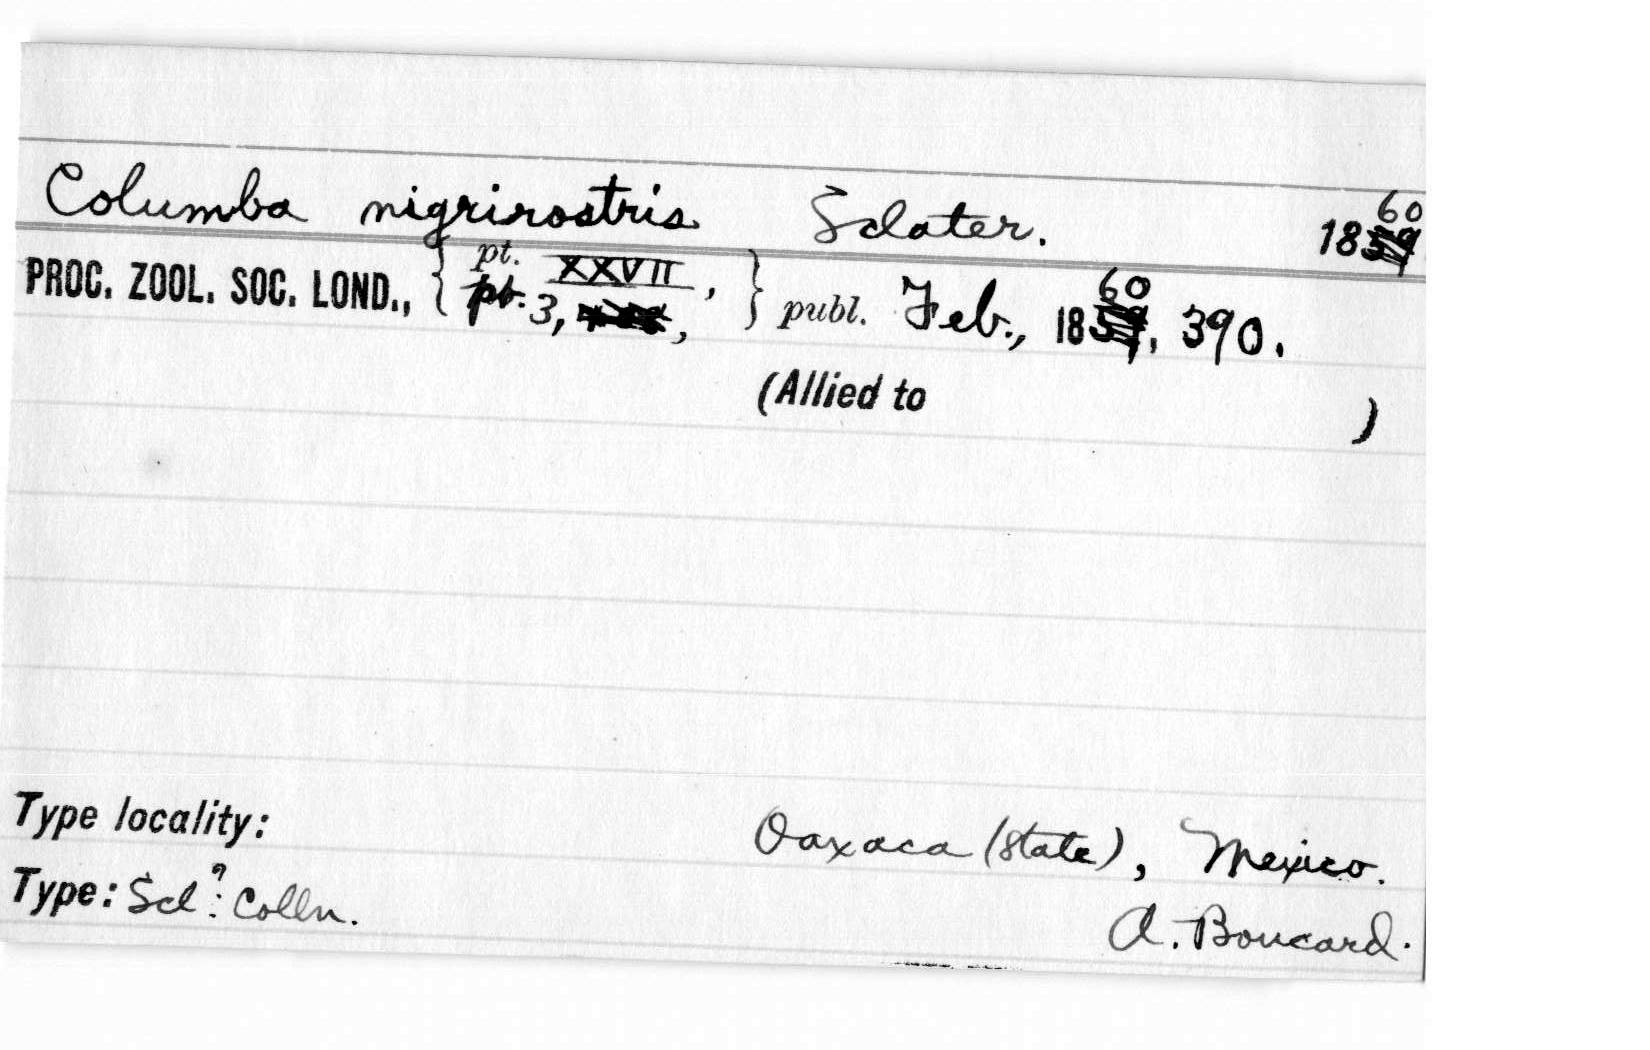 Columba nigrirostris Sclater. 1860
PROC. ZOOL. SOC. LOND., { pt. XXVII, pt. 3, , } publ. Feb., 1860, 390.
(Allied to )
Type locality: Oaxaca (state), Mexico.
Type: Scl?. Colln. A. Boucard.